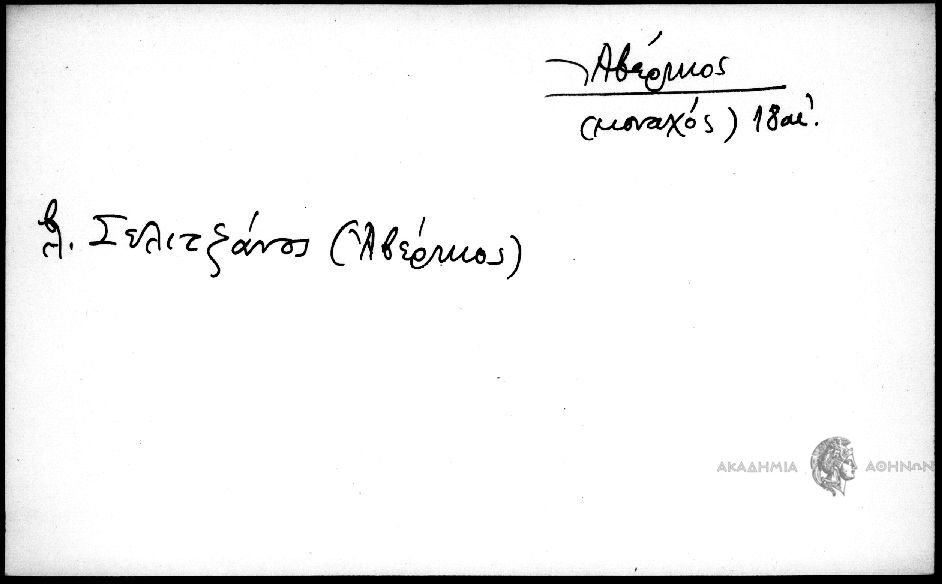 Ἀβέρκιος
(μοναχός) 18 αἰ.
βλ. Σελιτζάνος (Ἀβέρκιος)
ΑΚΑΔΗΜΙΑ ΑΘΗΝΩΝ